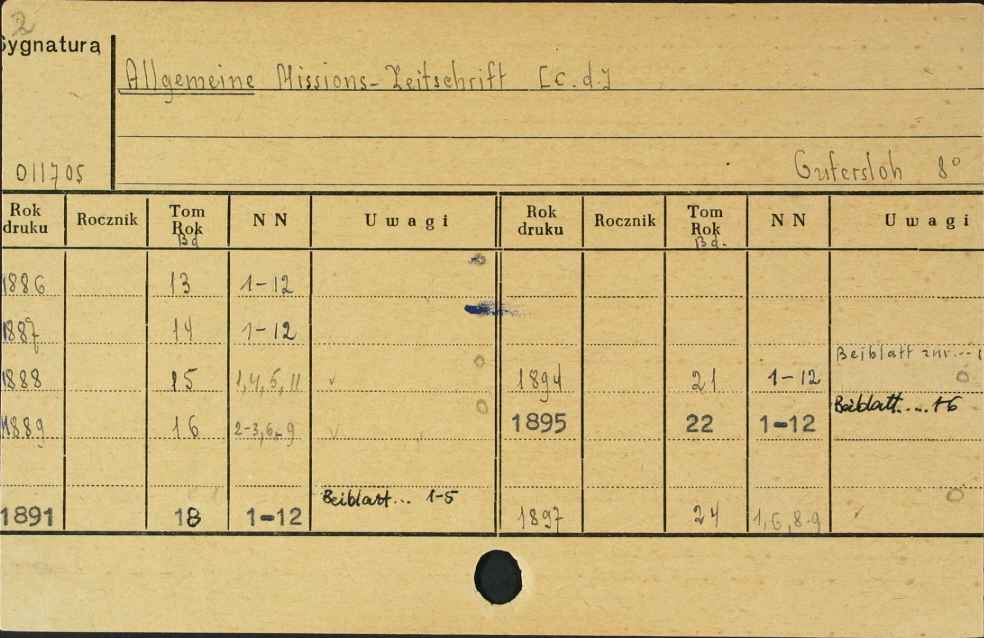 2
Sygnatura
Allgemeine Missions-Zeitschrift [c.d.]
011705
Gutersloh 8°
Rok druku Rocznik Tom Rok Bd NN Uwagi Rok druku Rocznik Tom Rok Bd. NN Uwagi
1886 13 1-12
1887 14 1-12
Beiblatt
1888 15 1,4,5,11 v 1894 21 1-12
Beiblatt.... 1-6
1889 16 2-3,6,-9 v 1895 22 1-12
Beiblatt... 1-5
1891 18 1-12 1897 24 1,6,8-9